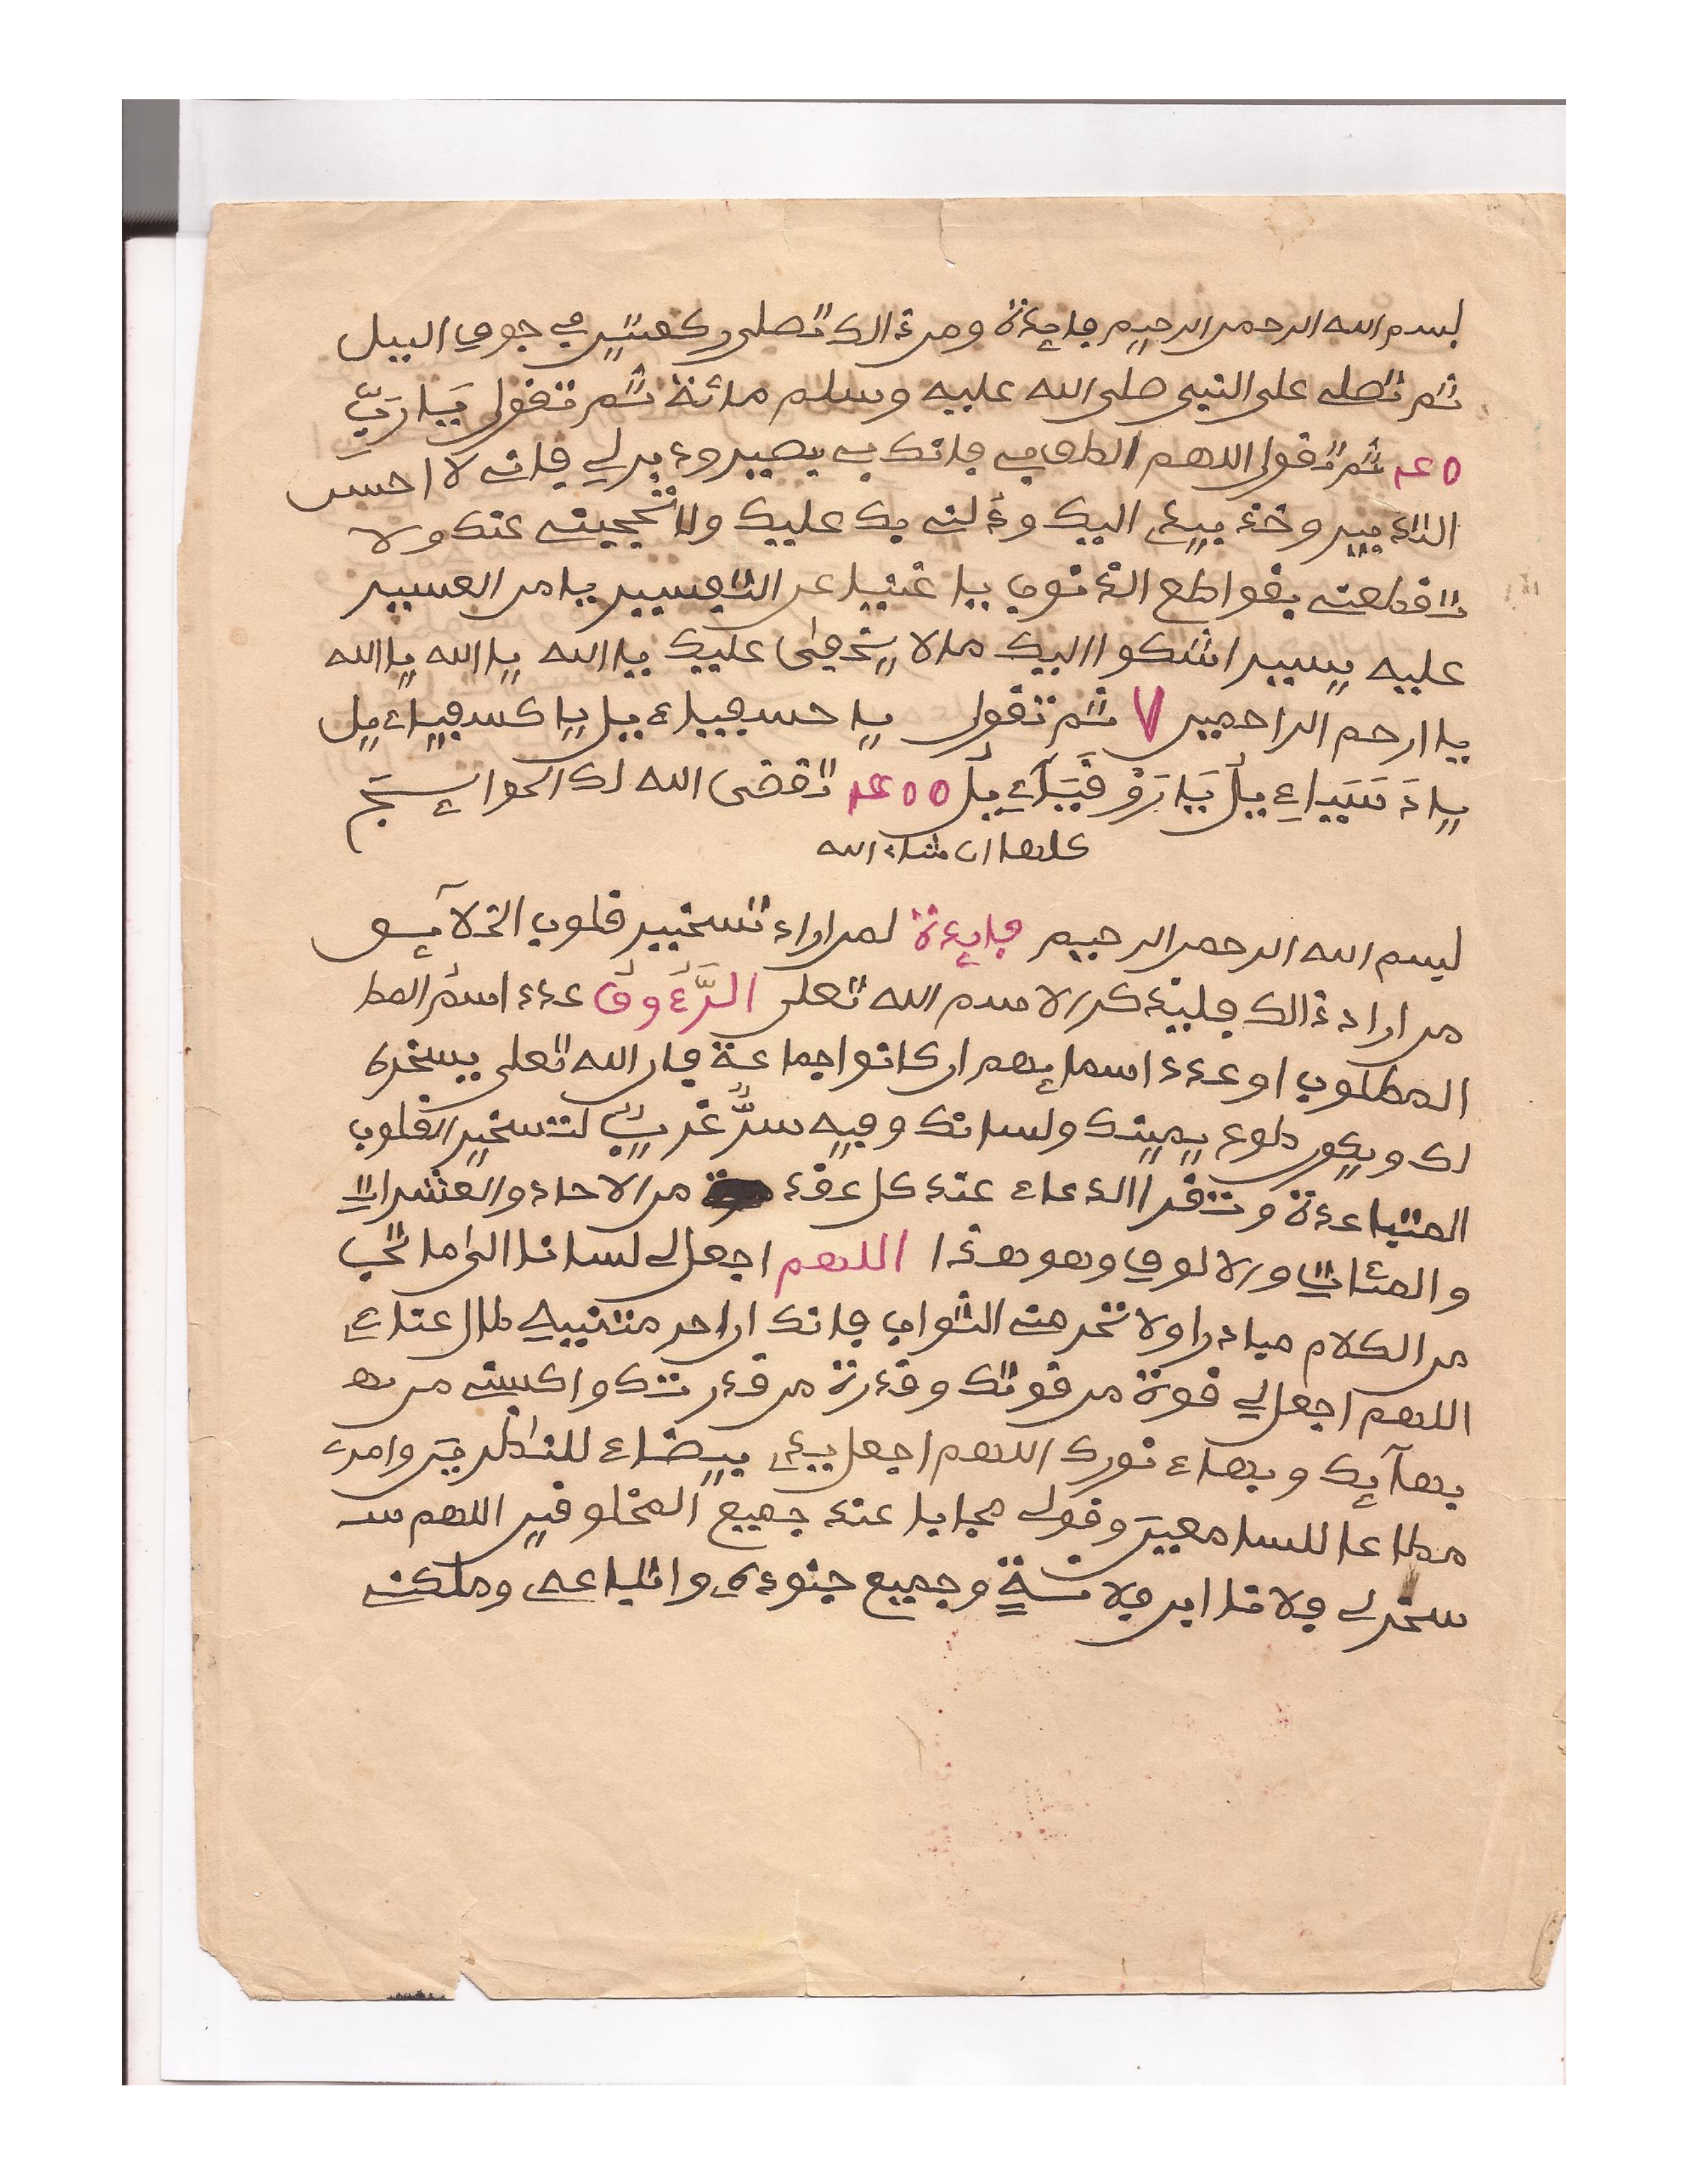 بسم الله الرحمن الرحيم فايدة ومن ذالك تصلى ركعتين في جوف اليل
ثم تصلى على النبي صلى الله عليه وسلم مائة ثم تقول يَا رَبِّ
ثم تقول اللهم الطف بي فانك بي بصير ودبر لي فاني لا احسن
التدبير وخذ بيدي اليك ودلني بك عليك ولا تحجبني عنك ولا
تقطعني بقواطع الذنوب يا غنيا عن التفسير يا من العسير
عليه يسير اشكوا اليك ما لا يخفى عليك يا الله يا الله يا الله
يا ارحم الراحمين ٧ ثم تقول يا حسفياءيل يا كسفياءيل
تقضى الله لك الحوائج
كلها ان شاء الله
بسم الله الرحمن الرحيم فايدة لمن اراد تسخير قلوب الخلآئق
من اراد ذالك فليذكر الاسم الله تعلى الرَّءُوفُ عدد اسم المط
المطلوب او عدد اسمائهم ان كانوا جماعة فان الله تعلى يسخره
لك ويكون طوع يمينك ولسانك وفيه سرٌّ غريبٌ لتسخير القلوب
المتباعدة وتقرا الدعاء عند كل عقد من الاحاد والعشرات
والمئات والالوف وهو هذا اللهم اجعل لى لسانا الى ماتحب
من الكلام مبادرا ولا تحرمني الثواب فانك ان احرمتنيه طال عناءي
اللهم اجعل لي قوة من قوتك وقدرة من قدرتك واكسني من به
بهآئك وبهاء نورك اللهم اجعل يدي بيضاء للناظرين وامرى
مطاعا للسامعين وقولى مجابا عند جميع المخلوقين اللهم س
سخر لى فلانا ابن فلانة وجميع جنوده واتباعه وملكني